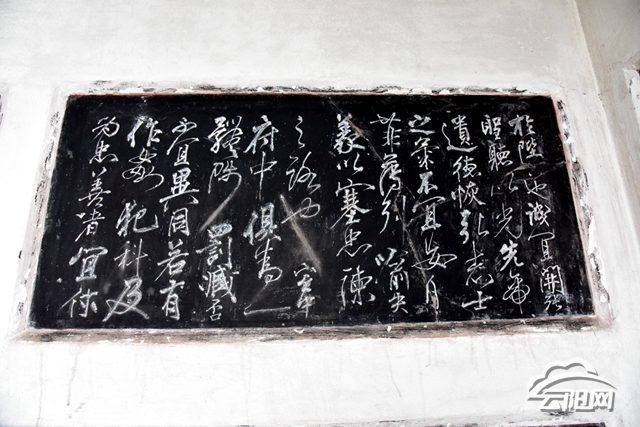 於陛下也誠宜開張
聖聽以光先帝
遺德恢弘志士
之氣不宜妄自
菲薄引喻失
義以塞忠諫
之路也宮中
府中俱為一
體陟罰臧否
不宜異同若有
作姦犯科及
為忠善者宜付
云阳网